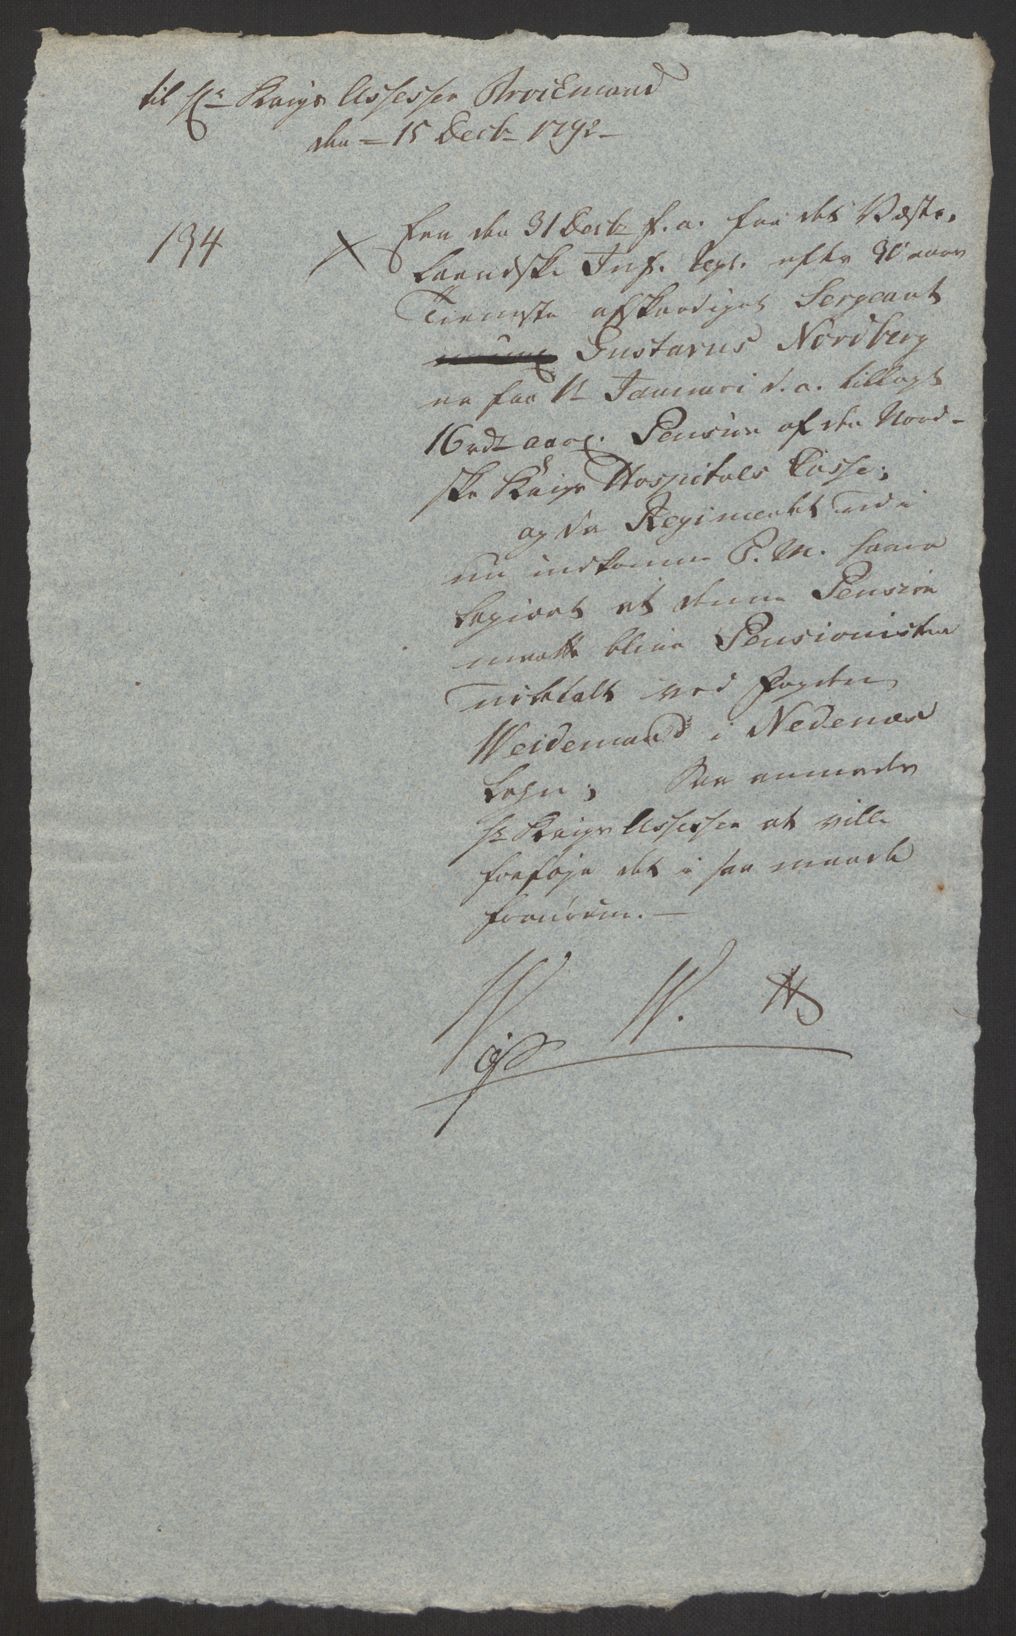 til Hr Krigs Assessor Broeemand
den 15 Decbr 1792
134
Een den 31 Decbr f. a. fra det Wæster-
landske Inf. Regt. efter 30 aars
Tieneste afskediget Sergeant
Gustavus Nordberg
er fra 1t Januari d. a. tillagt
16 rdr aarlg. Pension af den Nord-
ske Krigs Hospitals Casse;
og da Regimentet udi
nu indkomne P. M. haver
begiæret at denne Pension
maatte blive Pensionisten
udbetalt ved Fogden
Weidemand i Nedenæs
Lehn; Saa anmodes
Hr Krigs Assessor at ville
forføje det i saa maade
fornødne.
W. H